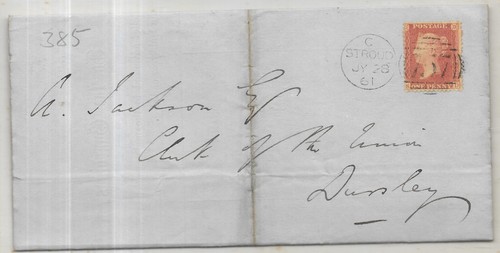 385
POSTAGE
C
STROUD
JY 28
61
ONE PENNY
A. Jackson Esq
Clerk of the Union
Dursley